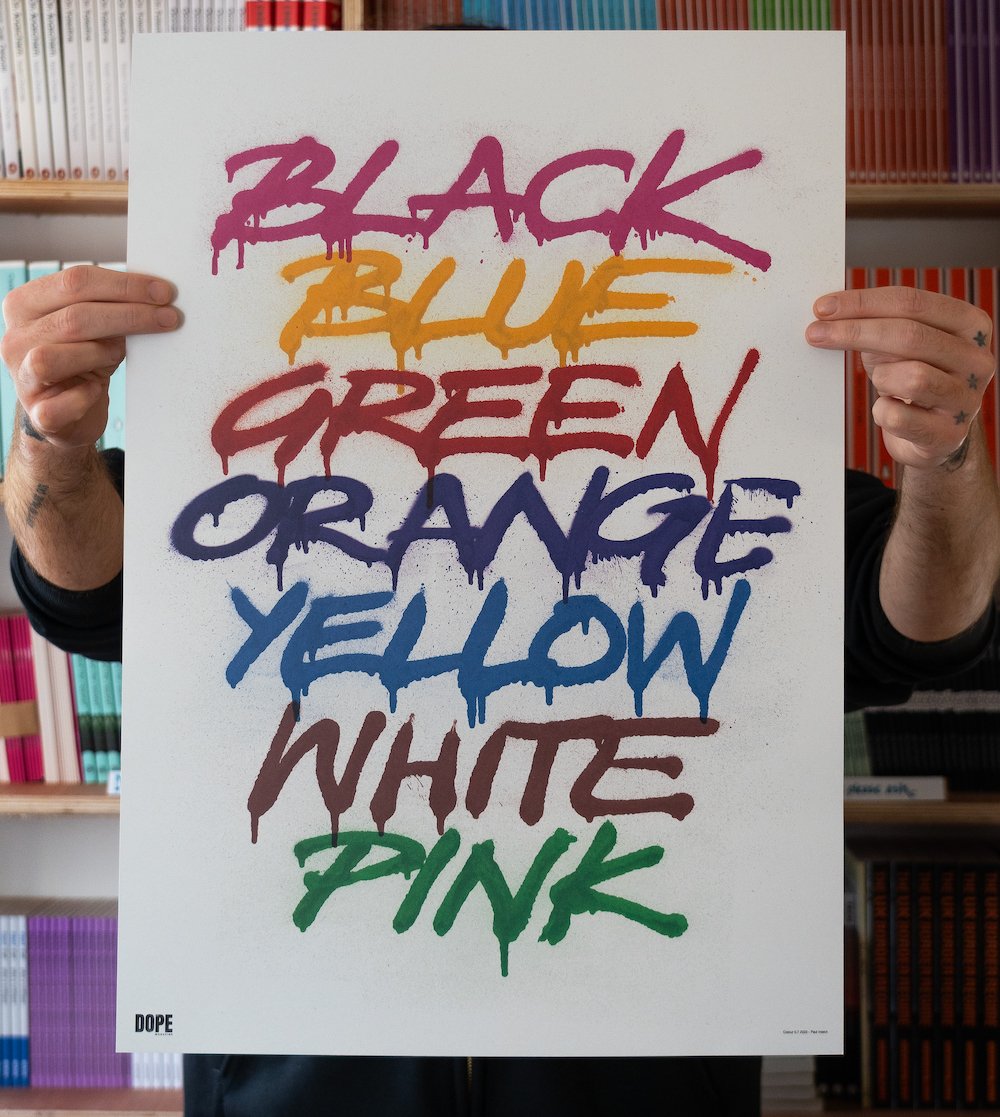 BLACK
BLUE
GREEN
ORANGE
YELLOW
WHITE
PINK
DOPE
MAGAZINE